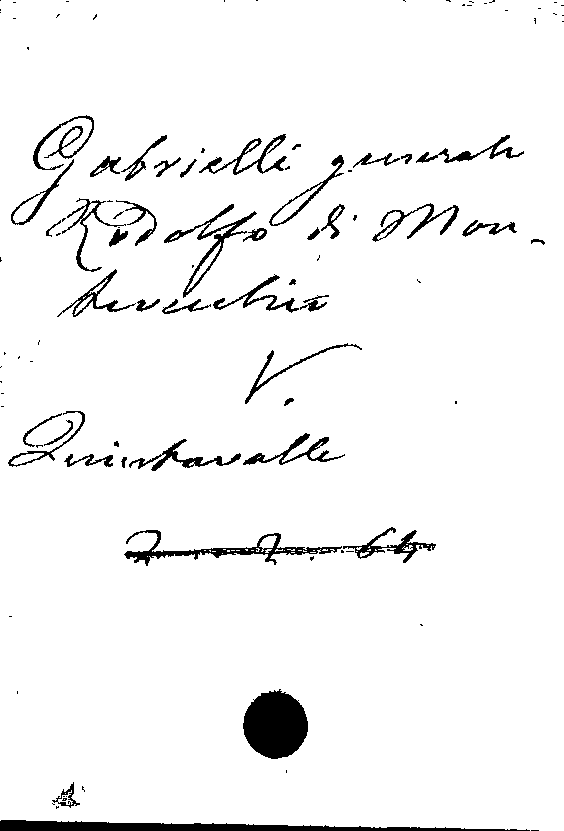 Gabrielli generale
Rodolfo di Mon-
tevecchio
V.
Quintavalle
2. 2. 64